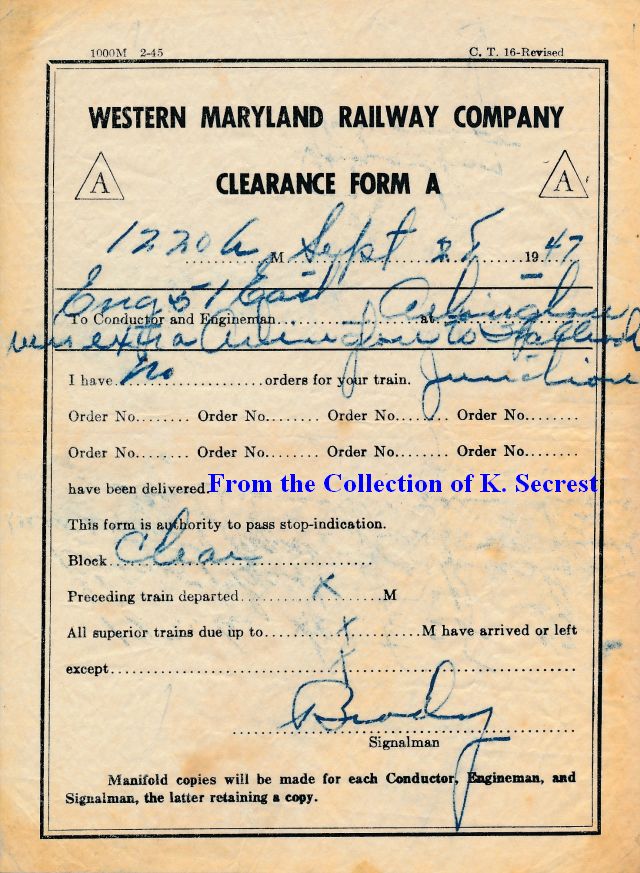 1000M 2-45 C. T. 16-Revised
WESTERN MARYLAND RAILWAY COMPANY
A CLEARANCE FORM A A
1220 A M Sept 25 1947
Eng 51 East Arlington
To Conductor and Engineman................at................
run extra Arlington to
I have no orders for your train. Junction
Order No........ Order No........ Order No........ Order No........
Order No........ Order No........ Order No........ Order No........
have been delivered. From the Collection of K. Secrest
This form is authority to pass stop-indication.
Block Clear
Preceding train departed X M
All superior trains due up to X M have arrived or left
except X
Brady
Signalman
Manifold copies will be made for each Conductor, Engineman, and
Signalman, the latter retaining a copy.